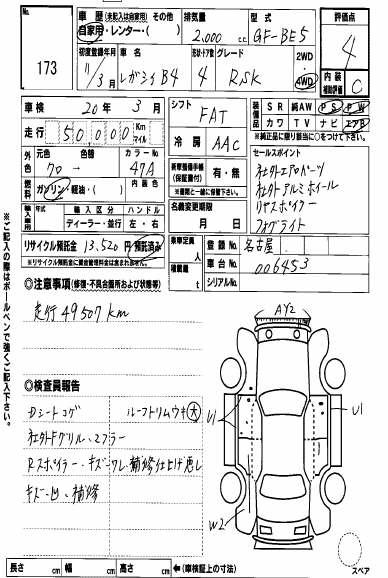 No. 173
車歴 (未記入は自家用) その他
自家用・レンター・( )
排気量 2,000 c.c.
型式 GF-BE5
評価点 4
初度登録年月 11/3月
車名 レガシィB4
形状・ドア数 4
グレード RSK
2WD・4WD
内装補助評価 C
車検 20年3月
シフト FAT
装備品 SR 純AW PS PW
カワ TV ナビ エアB
※純正品に限り該当に○をつけて下さい。
走行 50,000 Km マイル
冷房 AAC
セールスポイント
社外エアロパーツ
社外アルミホイール
リヤスポイラー
フォグライト
外色 元色 色替 カラーNo
→ 47A
燃料 ガソリン・軽油・( ) 内装色
新車整備手帳(保証書付) 有・無
※書類と一緒に保管下さい。
輸入車用 年式 輸入区分 ハンドル
ディーラー・並行 左・右
名義変更期限 月 日
リサイクル預託金 13,520円 預託済み
※リサイクル預託金に資金管理料金は含まれません。
乗車定員 人
積載量 t
登録No. 名古屋
車台No. 006453
シリアルNo.
◎注意事項 (修復・不具合箇所および状態等)
走行49507km
◎検査員報告
Dシートコゲ ルーフトリムウキ大
社外Fグリル・マフラー
Rスポイラー・キズ・ワレ・補修仕上げ悪し
キズ・凹・補修
AY2
U1
U1
W2
スペア
長さ cm 幅 cm 高さ cm ←(車検証上の寸法)
※ご記入の際はボールペンで強くご記入下さい。